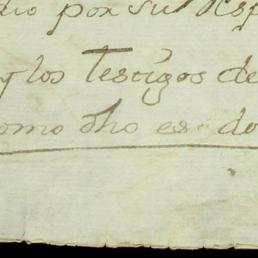 dio por su Resp
y los Testigos de
como dho es do